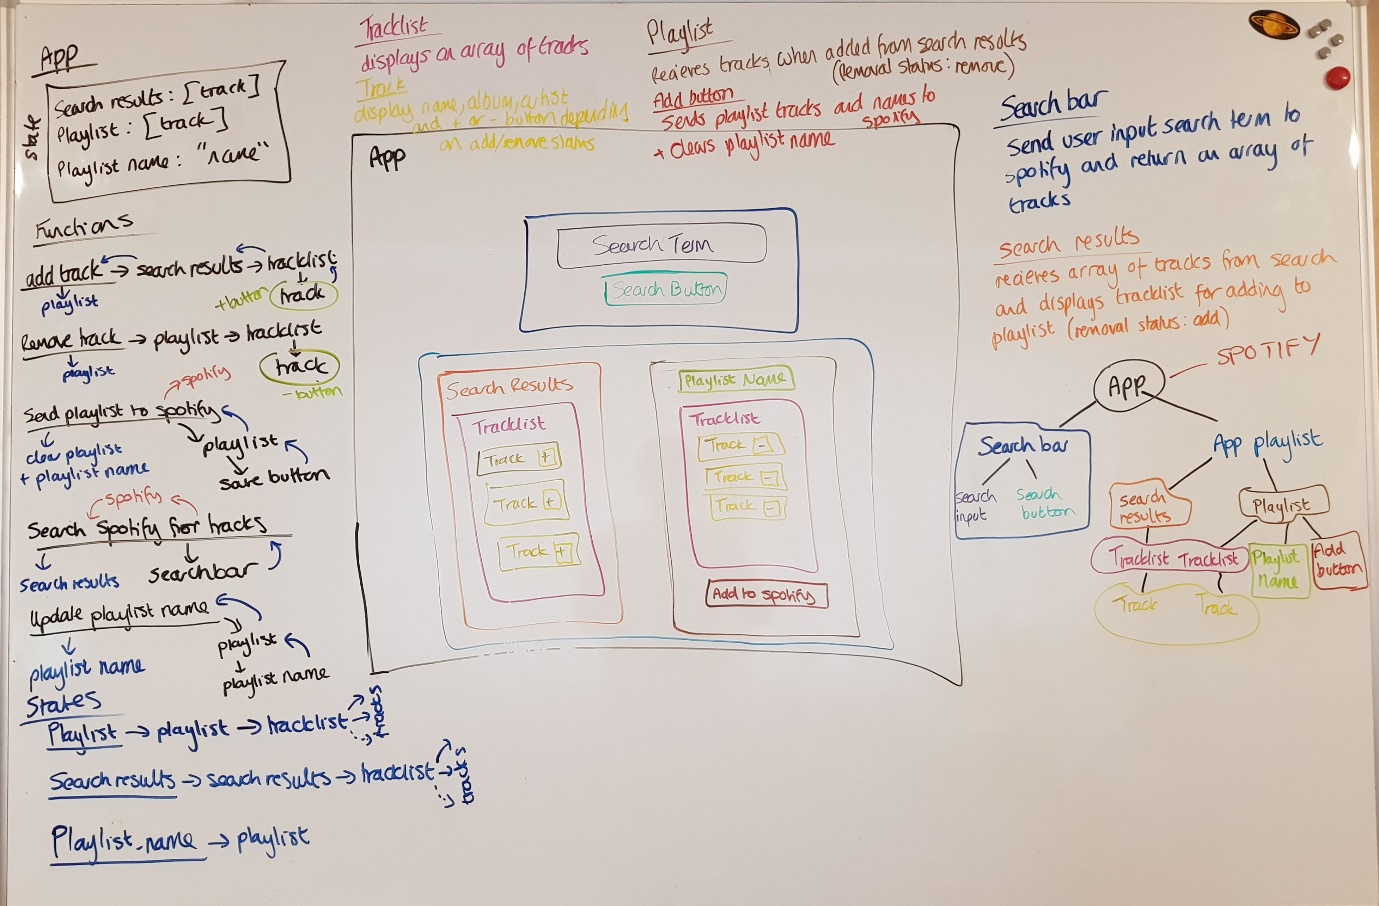 App
state
Search results: [track]
Playlist: [track]
Playlist name: "name"
Functions
add track → search results → tracklist
playlist
+button
track
Remove track → playlist → tracklist
playlist
track
- button
→ spotify
Send playlist to spotify
clear playlist
+ playlist name
playlist
save button
spotify
Search Spotify for tracks
search results
searchbar
Update playlist name
playlist name
playlist
playlist name
States
Playlist → playlist → tracklist → tracks
Search results → search results → tracklist → tracks
Playlist_name → playlist
Tracklist
displays an array of tracks
Track
display name, album, artist
and + or - button depending
on add/remove status
Playlist
Recieves tracks, when added from search results
(Removal status: remove)
Add button
Sends playlist tracks and names to
spotify
+ clears playlist name
App
Search Term
Search Button
Search Results
Tracklist
Track +
Track +
Track +
Playlist Name
Tracklist
Track -
Track -
Track -
Add to spotify
Search bar
Send user input search term to
spotify and return an array of
tracks
Search results
recieves array of tracks from search
and displays tracklist for adding to
playlist (removal status: add)
APP
SPOTIFY
Search bar
search
input
Search
button
App playlist
search
results
Playlist
Tracklist Tracklist
Playlist
name
Add
button
Track Track